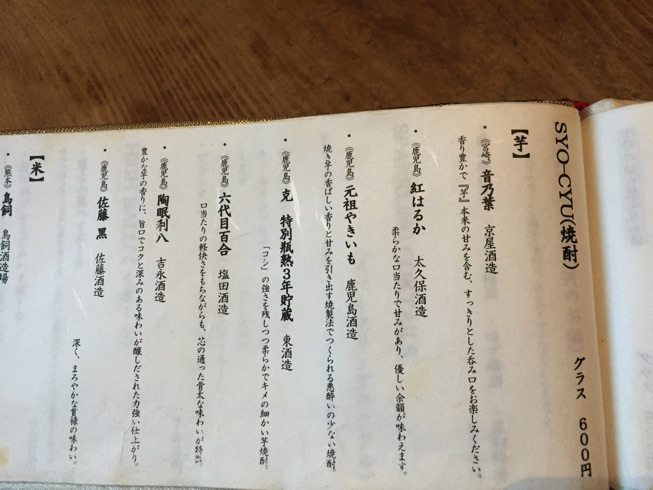 SYO-CYU(焼酎)
グラス 600円
【芋】
・《宮崎》 音乃葉 京屋酒造
香り豊かで『芋』本来の甘みを含む、すっきりとした呑み口をお楽しみください。
・《鹿児島》 紅はるか 太久保酒造
柔らかな口当たりで甘みがあり、優しい余韻が味わえます。
・《鹿児島》 元祖やきいも 鹿児島酒造
焼き芋の香ばしい香りと甘みを引き出す焼製法でつくられる悪酔いの少ない焼酎。
・《鹿児島》 克 特別瓶熟3年貯蔵 東酒造
「コシ」の強さを残しつつ柔らかでキメの細かい芋焼酎。
・《鹿児島》 六代目百合 塩田酒造
口当たりの軽快さをもちながらも、芯の通った骨太な味わいが特出。
・《鹿児島》 陶眠利八 吉永酒造
豊かな芋の香りに、旨口でコクと深みのある味わいが醸しだされた力強い仕上がり。
・《鹿児島》 佐藤 黒 佐藤酒造
深く、まろやかな貫禄の味わい。
【米】
・《熊本》 鳥飼 鳥飼酒造場